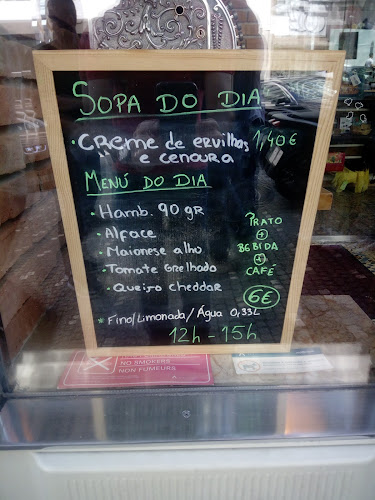 SOPA DO DIA
• CREME de ERVILHAS 1,40€
e CENOURA
MENÚ DO DIA
• Hamb. 90 gR
• Alface
• Maionese alho
• Tomate GRelhado
• Queijo cheddar
PRATO
+
BEBIDA
+
CAFÉ
6€
* Fino/Limonada/Água 0,33L
12h - 15h
NO SMOKERS
NON FUMEURS